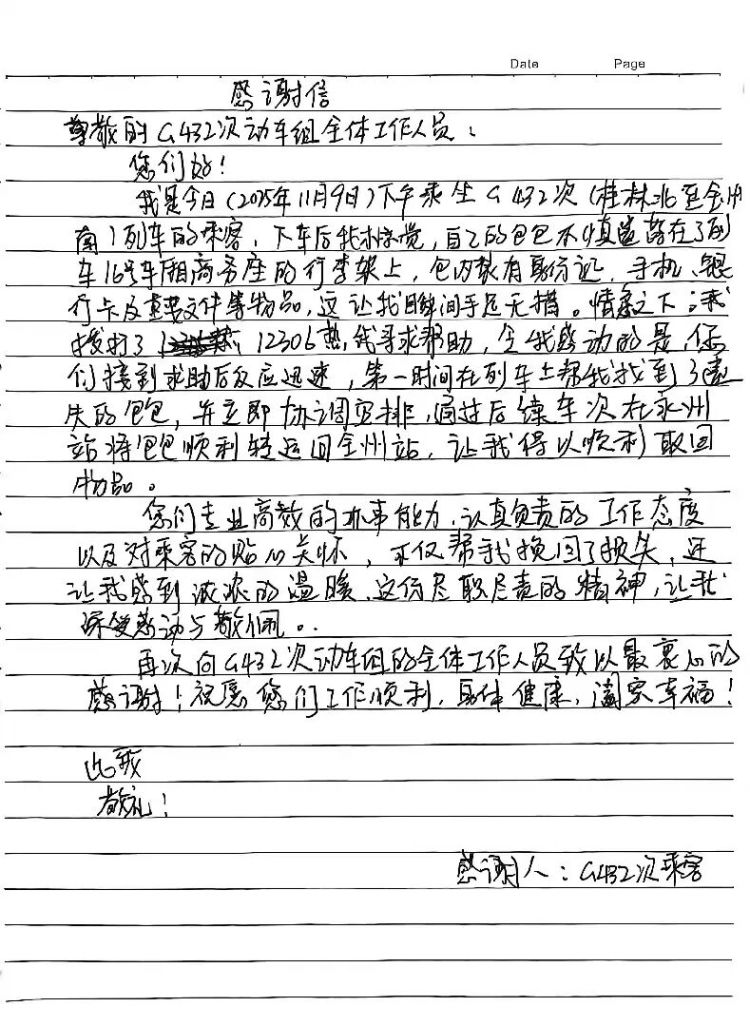 Date Page
感谢信
尊敬的G432次动车组全体工作人员：
您们好！
我是今日(2025年11月9日)下午乘坐G432次(桂林北至全州
南)列车的乘客，下车后我才惊觉，自己的包包不慎遗落在了动
车16号车厢商务座的行李架上，包内装有身份证、手机、银
行卡及重要文件等物品，这让我瞬间手足无措。情急之下，我
拨打了12306热线寻求帮助，令我感动的是，你
们接到求助后反应迅速，第一时间在列车上帮我找到了遗
失的包包，并立即协调安排，通过后续车次在永州
站将包包顺利转运回全州站，让我得以顺利取回
物品。
您们专业高效的办事能力、认真负责的工作态度
以及对乘客的贴心关怀，不仅帮我挽回了损失，还
让我感到浓浓的温暖，这份尽职尽责的精神，让我
深受感动与敬佩。
再次向G432次动车组的全体工作人员致以最衷心的
感谢！祝愿您们工作顺利，身体健康，阖家幸福！
此致
敬礼！
感谢人：G432次乘客